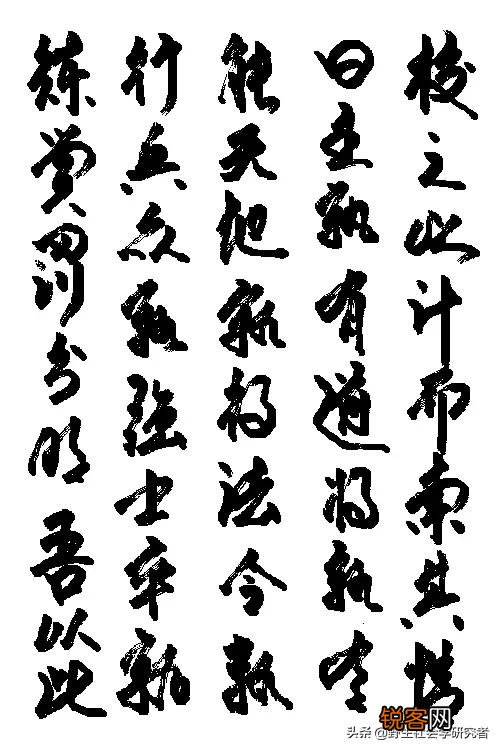 校之以計而索其情
曰主孰有道將孰有
能天地孰得法令孰
行兵众孰強士卒孰
練賞罰孰明吾以此
锐客网
头条 @野生社会学研究者